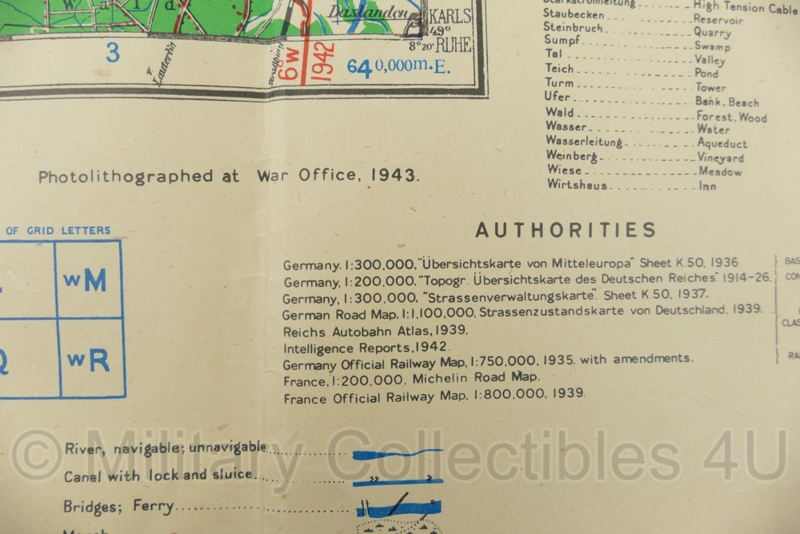 Wald
Daxlanden
KARLS
RUHE
49°
8°20'
3
v. Lauterb'g
6W
1942
640,000m.E.
High Tension Cable
Staubecken Reservoir
Steinbruch Quarry
Sumpf Swamp
Tal Valley
Teich Pond
Turm Tower
Ufer Bank, Beach
Wald Forest, Wood
Wasser Water
Wasserleitung Aqueduct
Weinberg Vineyard
Wiese Meadow
Wirtshaus Inn
Photolithographed at War Office, 1943.
OF GRID LETTERS
wM
Q
wR
AUTHORITIES
Germany. 1:300,000, "Übersichtskarte von Mitteleuropa" Sheet K.50, 1936
Germany, 1:200,000, "Topogr. Übersichtskarte des Deutschen Reiches" 1914-26.
Germany, 1:300,000, "Strassenverwaltungskarte". Sheet K.50, 1937.
German Road Map. 1:1,100,000, Strassenzustandskarte von Deutschland, 1939.
Reichs Autobahn Atlas, 1939.
Intelligence Reports, 1942.
Germany Official Railway Map, 1:750,000, 1935. with amendments.
France, 1:200,000, Michelin Road Map.
France Official Railway Map, 1:800,000, 1939.
BAS
CON
CLAS
RA
River, navigable; unnavigable
Canal with lock and sluice
Bridges; Ferry
© Military Collectibles 4U